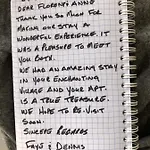 DEAR FLORENT/ANNE
THANK YOU SO MUCH FOR
MAKING OUR STAY A
WONDERFUL EXPERIENCE. IT
WAS A PLEASURE TO MEET
YOU BOTH.
WE HAD AN AMAZING STAY
IN YOUR ENCHANTING
VILLAGE AND YOUR APT.
IS A TRUE TREASURE.
WE HOPE TO RE-VISIT
SOON.
SINCERE REGARDS
FAYE & DENNIS